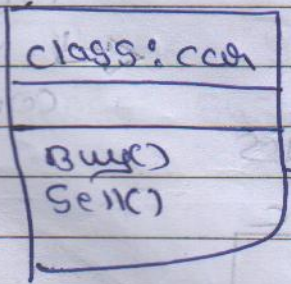 class: car
Buy()
Sell()